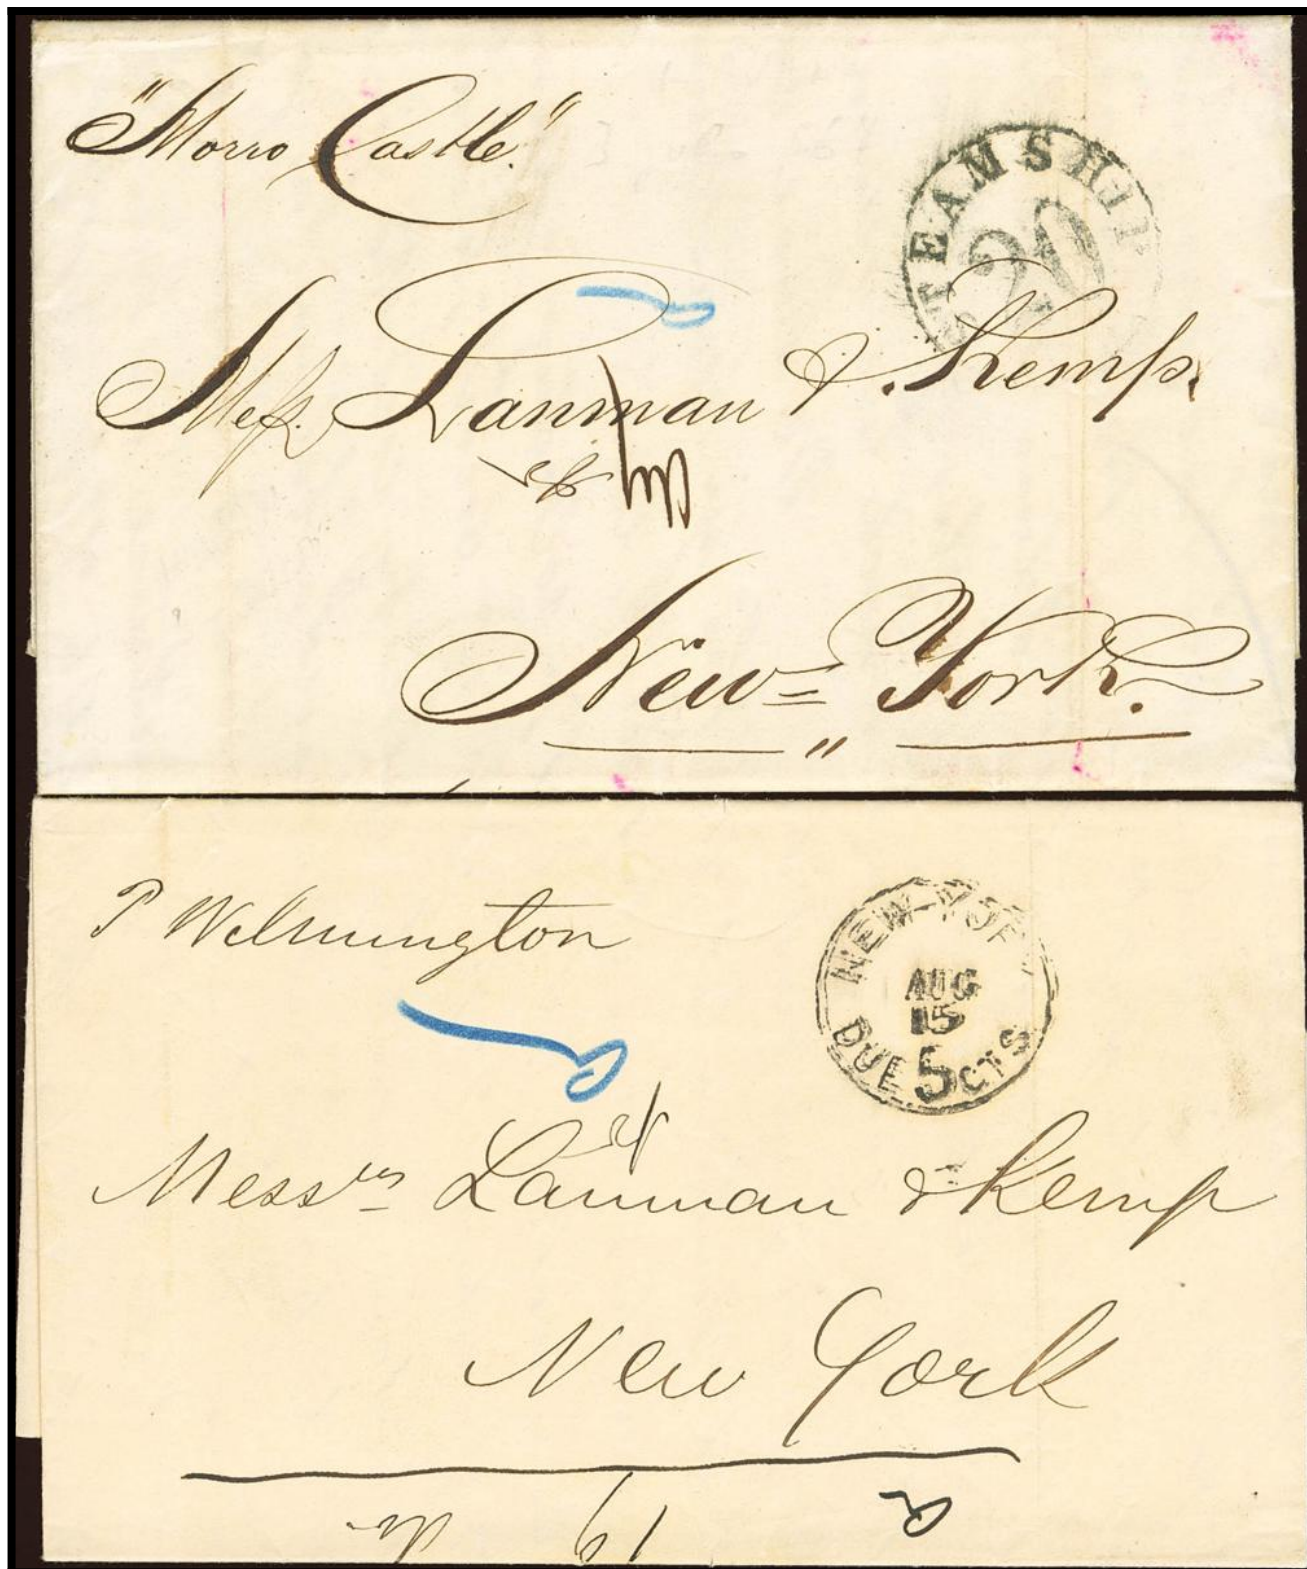 "Morro Castle."
STEAMSHIP
20
Mess. Lanman & Kemp.
New=York.
"
P Wilmington
NEW YORK
AUG
15
DUE 5 CTS
Mess<sup>rs</sup> Lanman & Kemp
New York